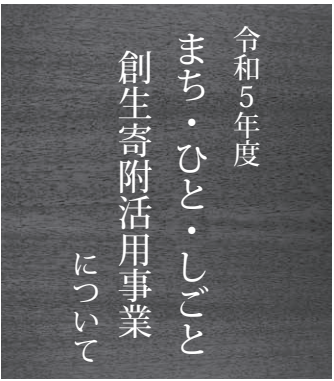 令和５年度
まち・ひと・しごと
創生寄附活用事業
について